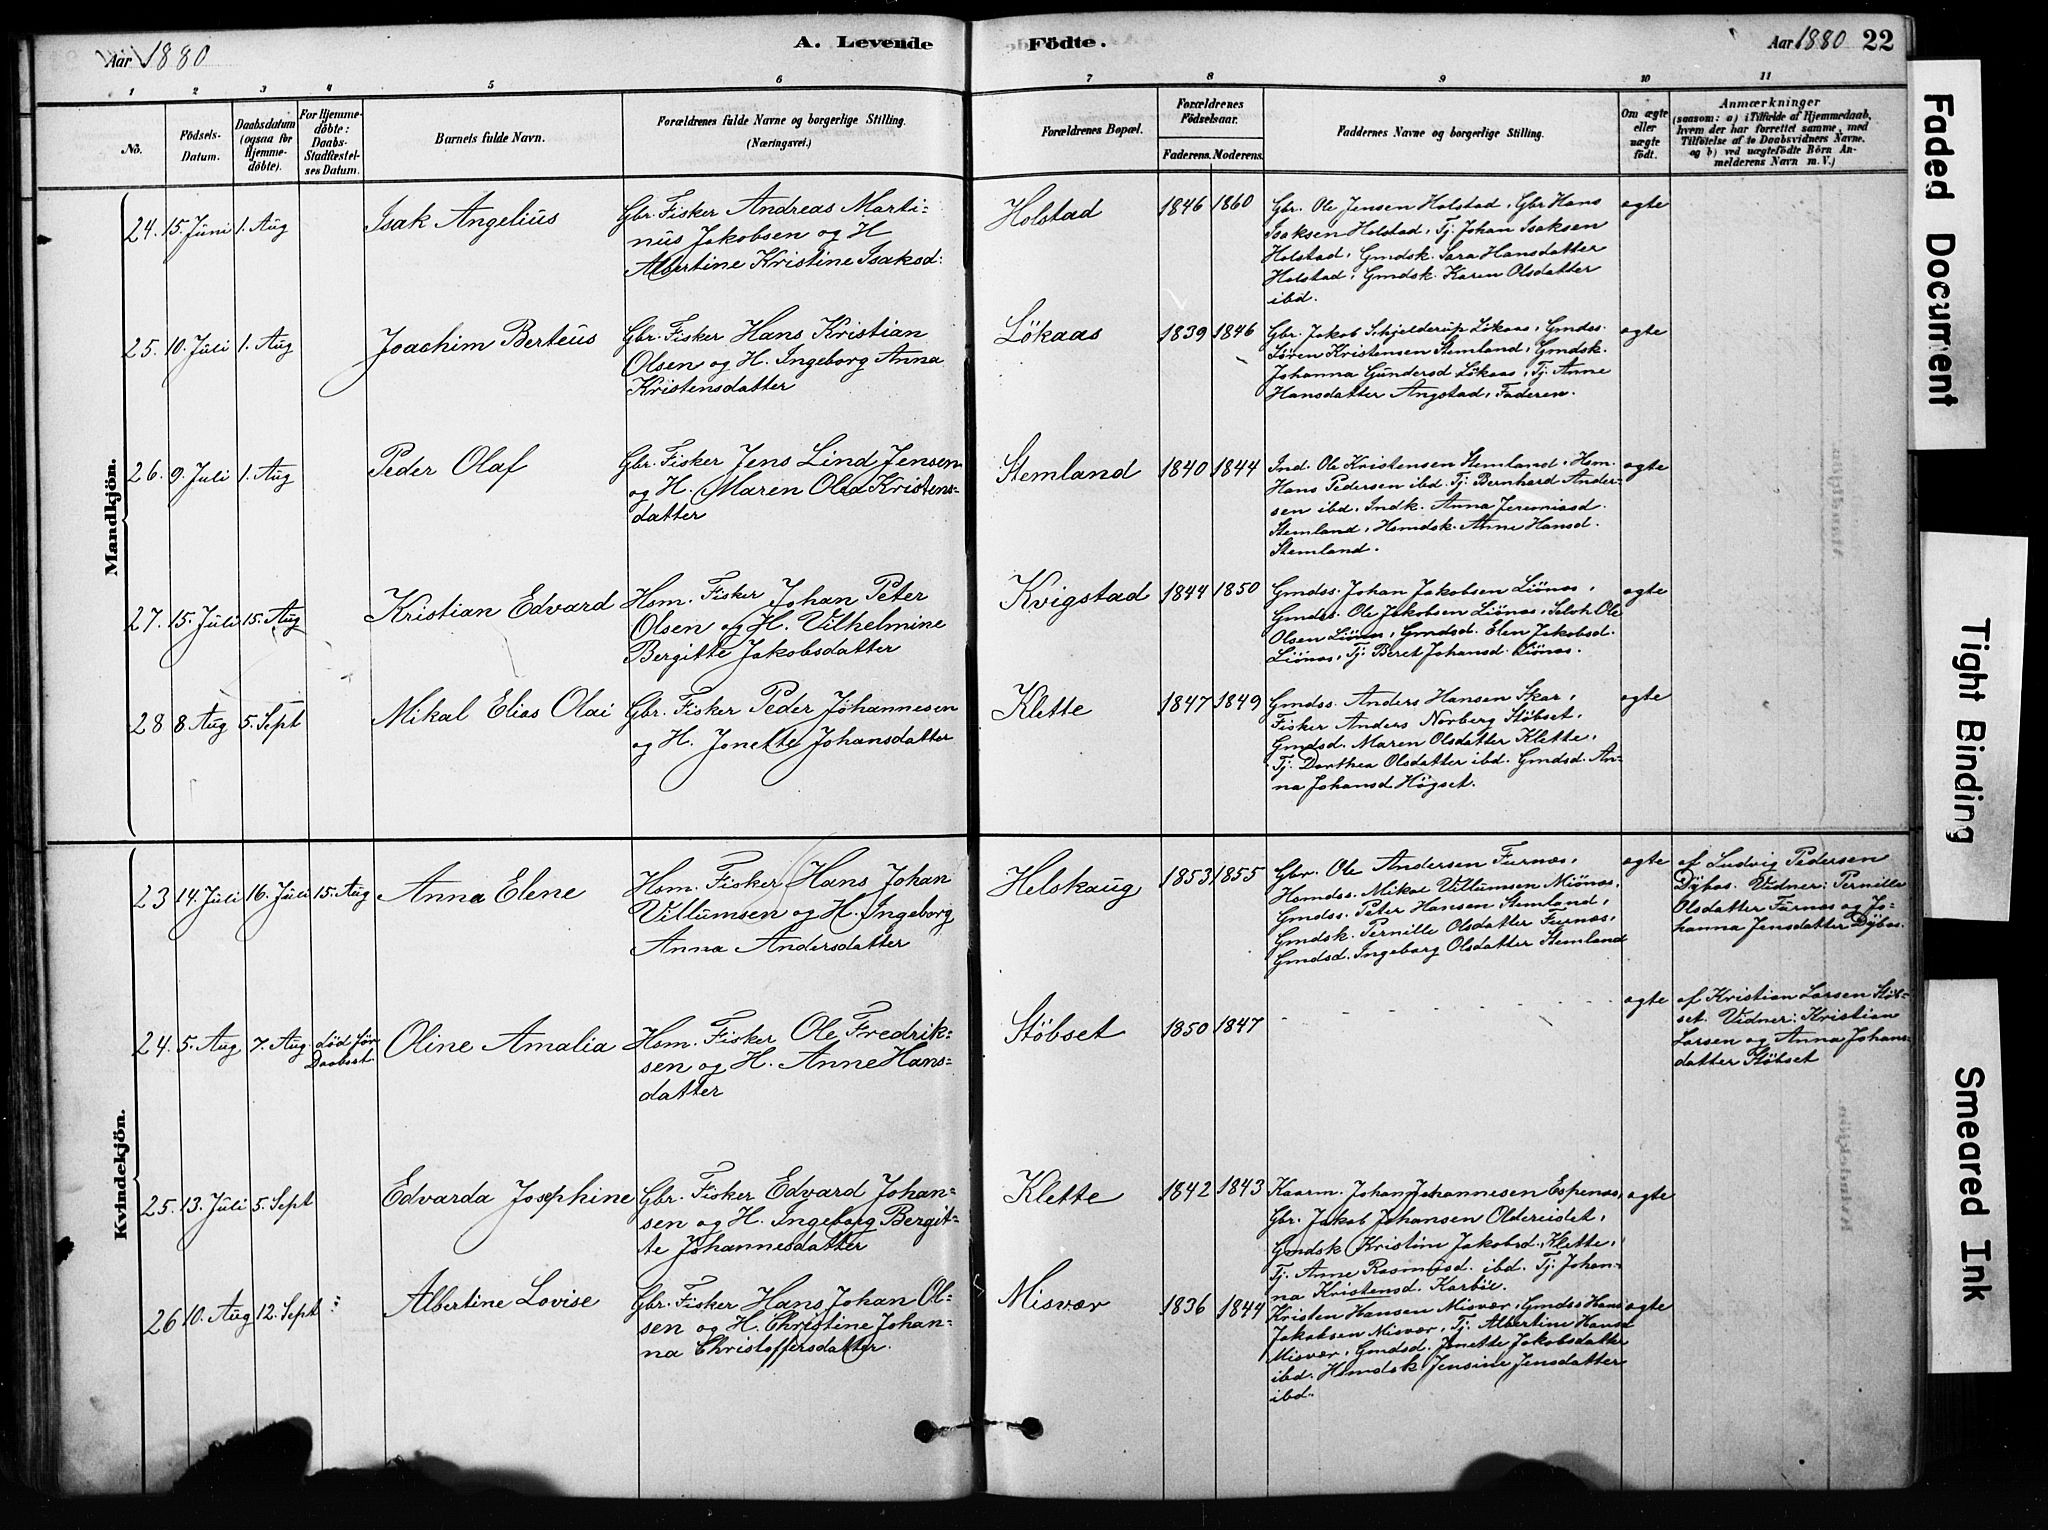 Aar 1880
A. Levende
Födte.
Aar 1880 22
1 2 3 4 5 6 7 8 9 10 11
No.
Födsels-
Datum.
Daabsdatum
(ogsaa for
Hjemme-
döbte).
For Hjemme-
döbte:
Daabs-
Stadfæstel-
ses Datum.
Barnets fulde Navn.
Forældrenes fulde Navne og borgerlige Stilling.
(Næringsvei.)
Forældrenes Bopæl.
Forældrenes
Födselsaar.
Faderens. Moderens.
Faddernes Navne og borgerlige Stilling.
Om ægte
eller
uægte
födt.
Anmærkninger
(saasom: a) i Tilfælde af Hjemmedaab,
hvem der har forrettet samme, med
Tilföielse af to Daabsvidners Navne.
og b) ved uægtefödte Börn An-
melderens Navn m. V.)
Mandkjön.
24. 15. Juni 1. Aug
Isak Angelius
Gbr. Fisker Andreas Marti-
nus Jakobsen og H
Albertine Kristine Isaksd:
Holstad
1846 1860
Gbr. Ole Jensen Holstad, Gbr Hans
Isaksen Holstad, Tj. Johan Isaksen
Holstad, Gmdsk. Sara Hansdatter
Holstad, Gmdsk. Karen Olsdatter
ibd.
ægte
25. 10. Juli 1. Aug
Joachim Berteus
Gbr. Fisker Hans Kristian
Olsen og H. Ingeborg Anna
Kristensdatter
Lökaas
1839 1846
Gbr. Jakob Schjelderup Lökaas, Gmds.
Sören Kristensen Stemland, Gmdsk.
Johanna Gundersd Lökaas, Tj. Anne
Hansdatter Angstad, Faderen.
ægte
26. 9. Juli 1. Aug
Peder Olaf
Gbr. Fisker Jens Lind Jensen
og H. Maren Olea Kristens-
datter
Stemland
1840 1844
Ind. Ole Kristensen Stemland, Hsm.
Hans Pedersen ibd. Tj. Bernhard Ander-
sen ibd. Indk. Anna Jeremiasd.
Stemland, Hsmdsk. Anne Hansd.
Stemland.
ægte
27. 15. Juli 15. Aug
Kristian Edvard
Hsm. Fisker Johan Peter
Olsen og H. Vilhelmine
Bergitte Jakobsdatter
Kvigstad
1844 1850
Gmdss. Johan Jakobsen Liönæs,
Gmdss. Ole Jakobsen Liönæs, Selvh. Ole
Olsen Liönæs, Gmdsd. Elen Jakobsd.
Liönæs, Tj. Beret Johansd. Liönæs.
ægte
28 8. Aug 5. Sept
Mikal Elias Olai
Gbr. Fisker Peder Johannesen
og H. Jonette Johansdatter
Klette
1847 1849
Gmdss. Anders Hansen Skar,
Fisker Anders Norberg Stöbset,
Gmdsd. Maren Olsdatter Klette,
Tj. Dorthea Olsdatter ibd. Gmdsd. An-
na Johansd Högset.
ægte
Kvindekjön.
23 14. Juli 16. Juli 15. Aug
Anna Elene
Hsm. Fisker Hans Johan
Villumsen og H. Ingeborg
Anna Andersdatter
Helskaug
1853 1855
Gbr. Ole Andersen Furnæs,
Hsmdss. Mikal Villumsen Miönæs,
Gmdss. Peter Hansen Stemland,
Gmdsk. Pernille Olsdatter Furnæs,
Gmdsd. Ingeborg Olsdatter Stemland
ægte
af Ludvig Pedersen
Dybos. Vidner: Pernille
Olsdatter Furnæs og Jo-
hanna Jensdatter Dybos.
24. 5. Aug 7. Aug. död för
Daabst.
Oline Amalia
Hsm. Fisker Ole Fredrik-
sen og H. Anne Hans-
datter
Stöbset
1850 1847
ægte
af Kristian Larsen Stöb-
set. Vidner: Kristian
Larsen og Anna Johans-
datter Stöbset
25. 13. Juli 5. Sept
Edvarda Josephine
Gbr. Fisker Edvard Johan-
sen og H. Ingeborg Bergit-
te Johannesdatter
Klette
1842 1843
Kaarm. Johan Johannesen Espenæs,
Gbr. Jakob Johansen Oldereidet,
Gmdsk Kristine Jakobsd. Klette,
Tj. Anne Rasmusd. ibd. Tj. Johan-
na Kristensd. Karböe.
ægte
26 10. Aug 12. Sept
Albertine Lovise
Gbr. Fisker Hans Johan Ol-
sen og H. Christine Johan-
na Christoffersdatter.
Misvær
1836 1844
Kristen Hansen Misvær, Gmdss Hans
Jakobsen Misvær, Tj. Albertine Hansd
Misvær, Gmdsd. Jonette Jakobsdatter
ibd. Hsmdsk. Jensine Jensdatter
ibd.
ægte
Faded Document
Tight Binding
Smeared Ink